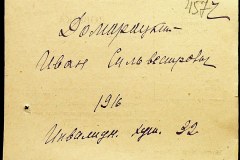 4572
Домарацкий
Иван Сильвестровы
1916
Инвалидн. 22